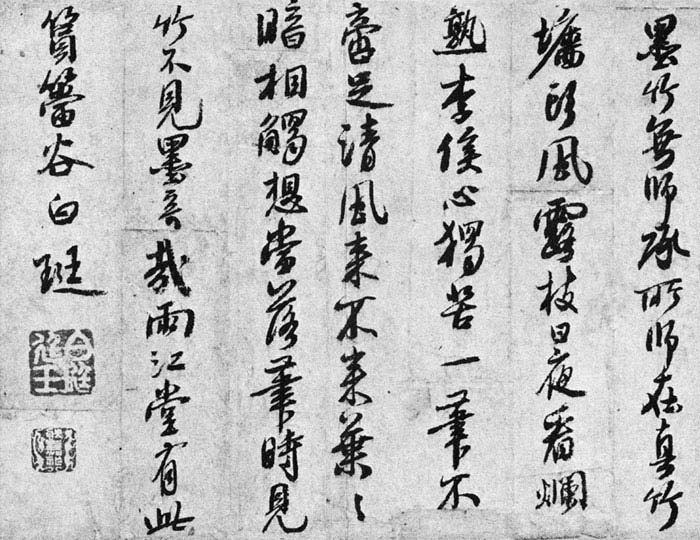 墨竹無師承所師在真竹
墻頭風露枝日夜看爛
熟李侯心獨苦一筆不
啻足清風来不来葉〻
暗相觸想當落筆時見
竹不見墨奇哉雨江堂有此
篔簹谷白珽